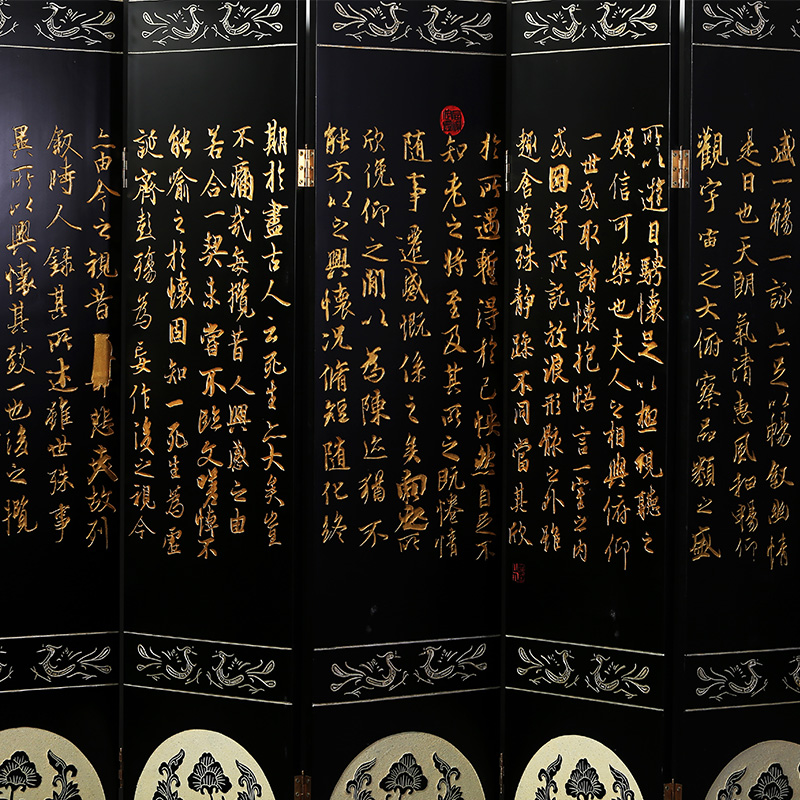 盛一觴一詠亦足以暢敘幽情
是日也天朗氣清惠風和暢仰
觀宇宙之大俯察品類之盛
所以遊目騁懷足以極視聽之
娛信可樂也夫人之相與俯仰
一世或取諸懷抱悟言一室之內
或因寄所託放浪形骸之外雖
趣舍萬殊靜躁不同當其欣
於所遇暫得於己怏然自足不
知老之將至及其所之既惓情
随事遷感慨係之矣向之所
欣俛仰之閒以為陳迹猶不
能不以之興懷况脩短随化終
期於盡古人云死生亦大矣豈
不痛哉每攬昔人興感之由
若合一契未嘗不臨文嗟悼不
能喻之於懷固知一死生為虛
誕齊彭殤為妄作後之視今
亦由今之視昔悲夫故列
敘時人錄其所述雖世殊事
異所以興懷其致一也後之攬